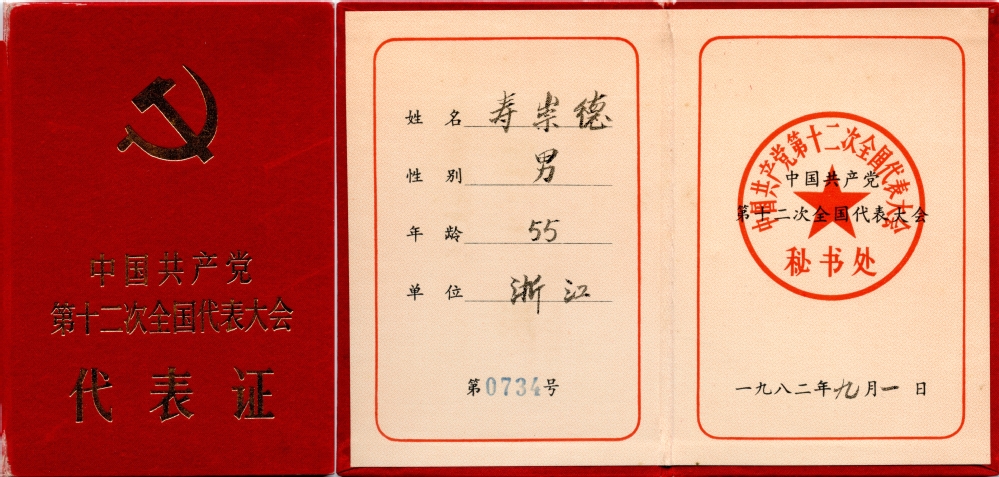 中国共产党
第十二次全国代表大会
代表证
姓名 寿崇德
性别 男
年龄 55
单位 浙江
第0734号
中国共产党第十二次全国代表大会
中国共产党
第十二次全国代表大会
秘书处
一九八二年九月一日